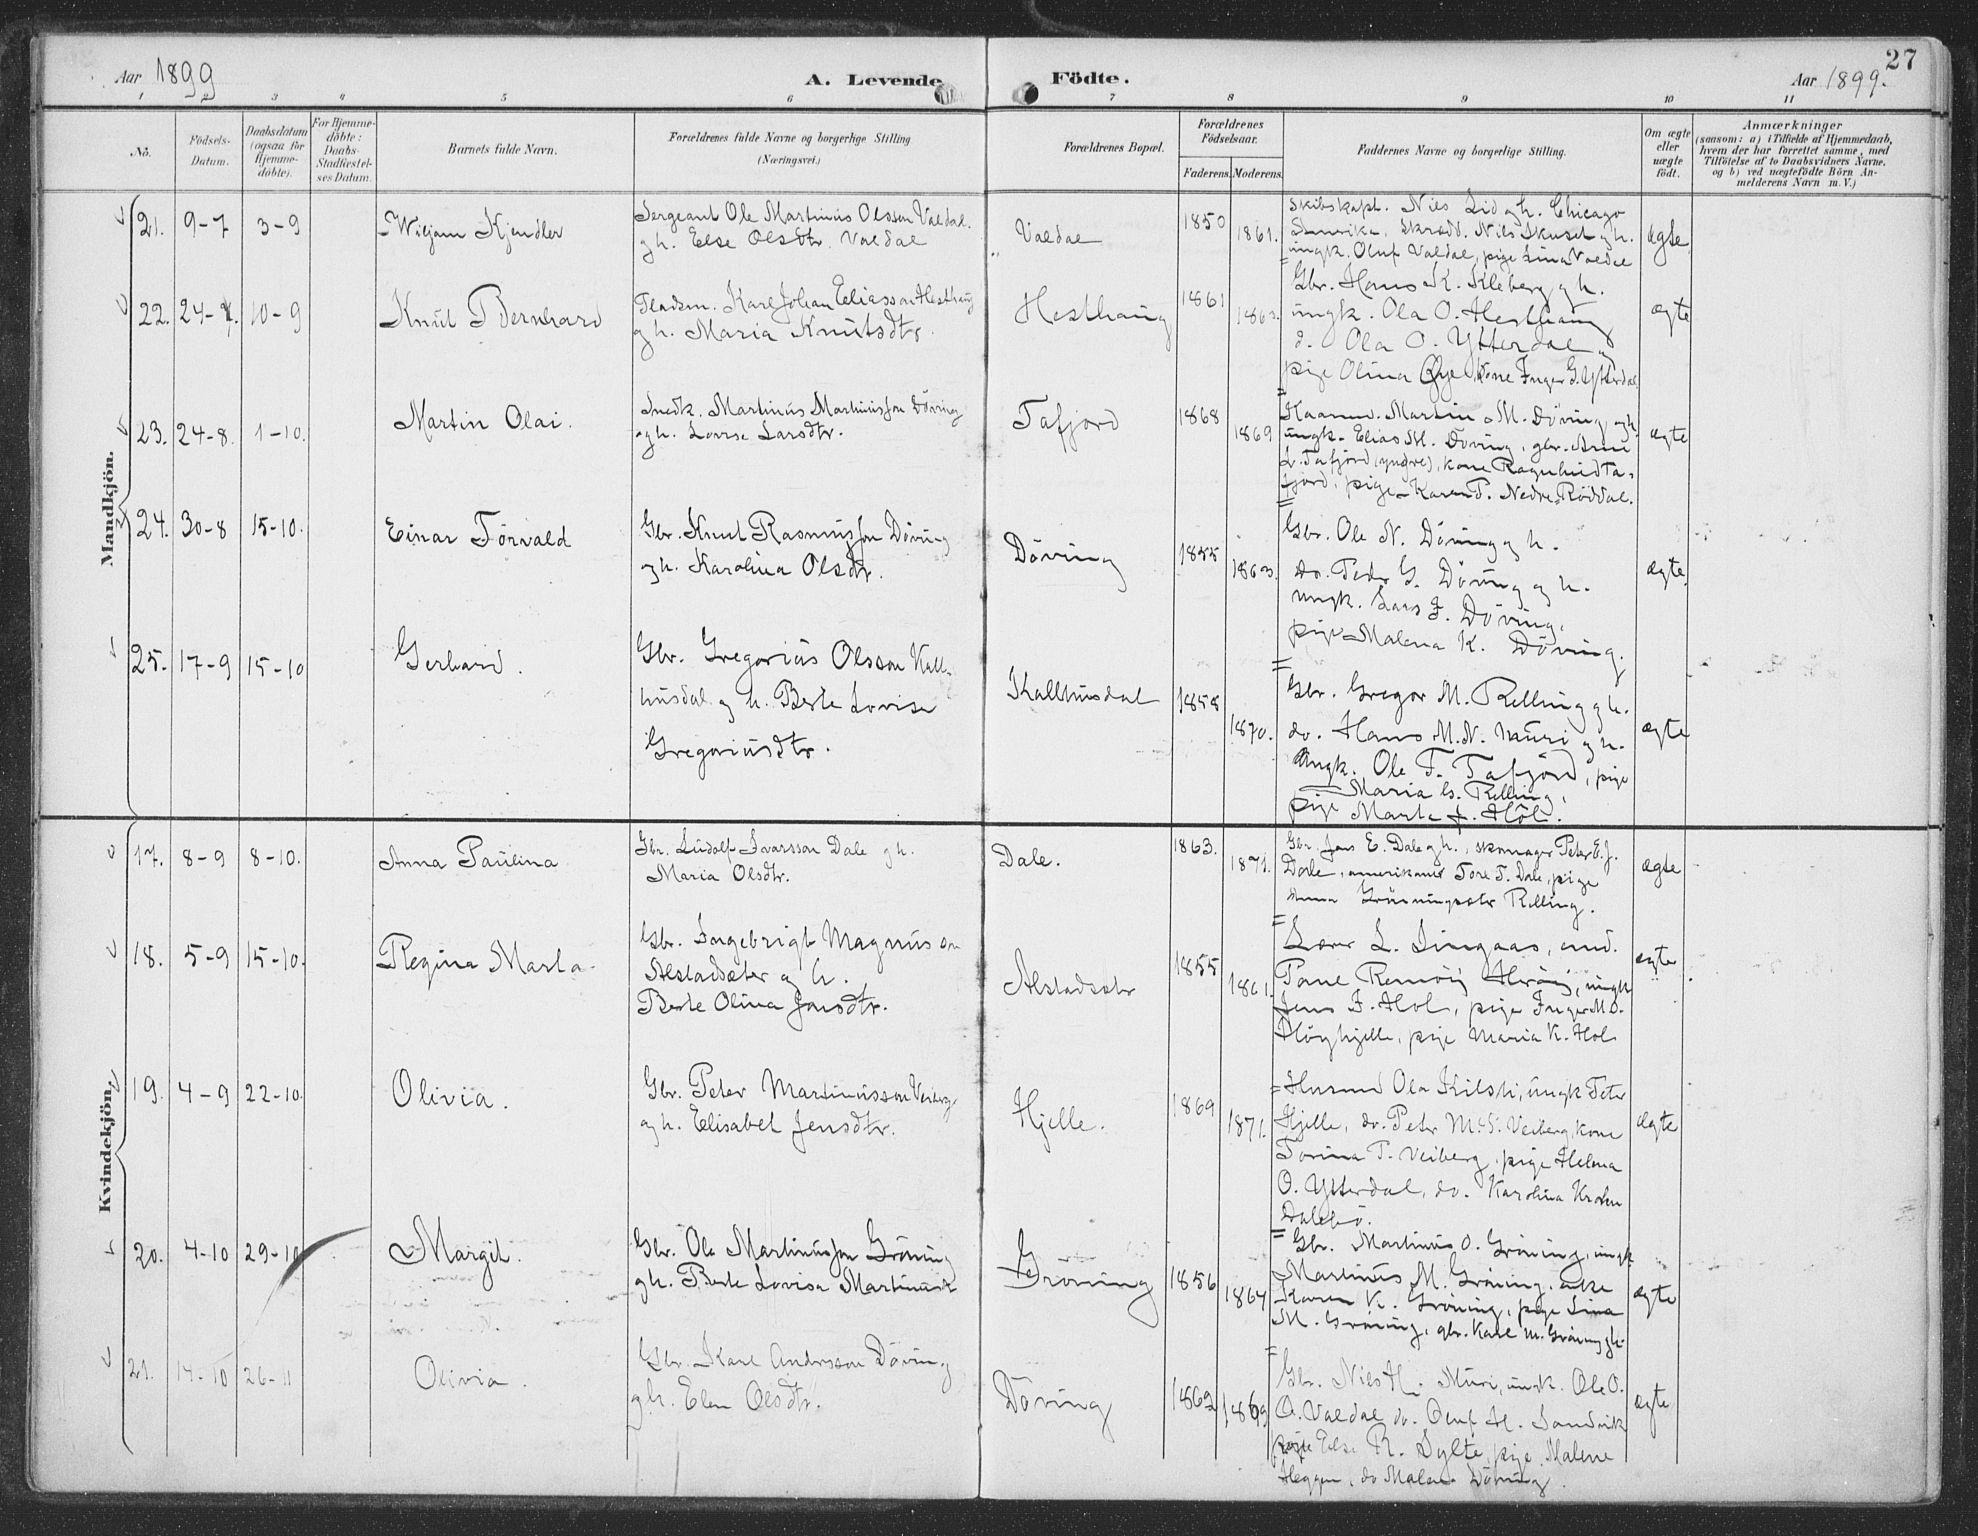 27
Aar 1899
A. Levende
Födte.
Aar 1899.
1 2 3 4 5 6 7 8 9 10 11
No.
Födsels-Datum.
Daabsdatum (ogsaa for Hjemme-döbte).
For Hjemme-döbte: Daabs-Stadfæstel-ses Datum.
Barnets fulde Navn.
Forældrenes fulde Navne og borgerlige Stilling (Næringsvei.)
Forældrenes Bopæl.
Forældrenes Födselsaar.
Faderens. Moderens.
Faddernes Navne og borgerlige Stilling.
Om ægte eller uægte födt.
Anmærkninger
(saasom: a) i Tilfælde af Hjemmedaab, hvem der har forrettet samme, med Tilföielse af to Daabsvidners Navne. og b) ved uægtefödte Börn An-melderens Navn m. V.)
Mandkjön.
21. 9-7 3-9 Wiljam Kjendler
Sergeant Ole Martinius Olsson Valdal.
gh. Else Olsdtr. Valdal
Valdal 1850 1861.
Skibskapt. Nils Lid gh. Chicago
Amerika, Skrædd. Nils Skuset gh.
ungk. Oluf Valdal, pige Lina Valdal
ægte
22. 24-7. 10-9 Knut Bernhard
Pladsm. Karl Johan Eeliasson Hesthaug
gh. Maria Knutsdtr.
Hesthaug 1861 1863.
Gbr. Hans K. Kleberg gh.
ungk. Ola O. Hesthaug
d. Ola O. Ytterdal
pige Olina Øye, Kone Inger G. Ytterdal
ægte
23. 24-8. 1-10. Martin Olai.
Snedk. Martinus Martinussøn Döving
gh. Lovise Larsdtr.
Tafjord 1868 1869
Haanv. Martin M. Döving gh.
ungk. Elias M. Döving, gbr. Arne
L. Tafjord (yngre), kone Ragnhild Ta-
fjord, pige Karen T. Nedre Röddal.
ægte
24. 30-8 15-10. Einar Torvald
Gbr. Knut Rasmussøn Döving
gh. Karolina Olsdtr.
Döving 1855 1863.
Gbr. Ole N. Döving gh.
do. Peder G. Döving gh.
ungk. Lars J. Döving.
pige Malena K. Döving.
ægte.
25. 17-9 15-10 Gerhard.
Gbr. Gregorius Olsson Kall-
husdal gh. Berte Lovise
Gregoriusdtr.
Kallhusdal 1858 1870.
Gbr. Gregor M. Relling gh.
do. Hans M. N. Muri gh.
Ungk. Ole T. Tafjord, pige
Maria G. Relling,
pige Marte J. Höl.
ægte
Kvindekjön.
17. 8-9 8-10. Anna Paulina
Gbr. Ludolf Ivarsson Dale gh.
Maria Olsdtr.
Dale. 1863. 1871.
Gbr. Jens E. Dale gh., skomager Peter E. J.
Dale, amerikaner Tore T. Dale, pige
Anna Gröningsæter Relling.
ægte
18. 5-9 15-10. Regina Marta.
Gbr. Ingebrigt Magnusson
Alstadsæter gh.
Berte Olina Jensdtr.
Alstadsætr 1855 1861.
Lærer L. Lingaas, und.
ungk
Jens J. Hol, pige Inger M. O.
pige Maria K. Hol
ægte
19. 4-9 22-10. Olivia.
Gbr. Peter Martinusson Veiberg
gh. Elisabet Jensdtr.
Hjelle. 1869 1871.
Husmd Ola Kilsti, ungk Peter
Hjelle, do. Petr M. S. Veiberg, kone
Torina P. Veiberg, pige Helena
O. Ytterdal, do. Karolina
Dalebö.
ægte
20. 4-10 29-10 Margit.
Gbr. Ole Martinussøn Gröning
gh. Berte Lovisa Martinusdt
Gröning 1856 1864
Gbr. Martinus O. Gröning, ungk
Martinus M. Gröning, enke
Karen K. Gröning, pige Lina
M. Gröning, gbr. Karl M. Gröning gh.
ægte
21. 14-10 26-11 Olivia.
Gbr. Karl Andersson Döving
gh. Elen Olsdtr.
Döving 1862 1869
Gbr. Nils H. Muri, ungk. Ole O.
O. Valdal do. Oluf H. Sandvik
pige Else R. Sylte, pige Malene
Heggen, do Malene Döving
ægte